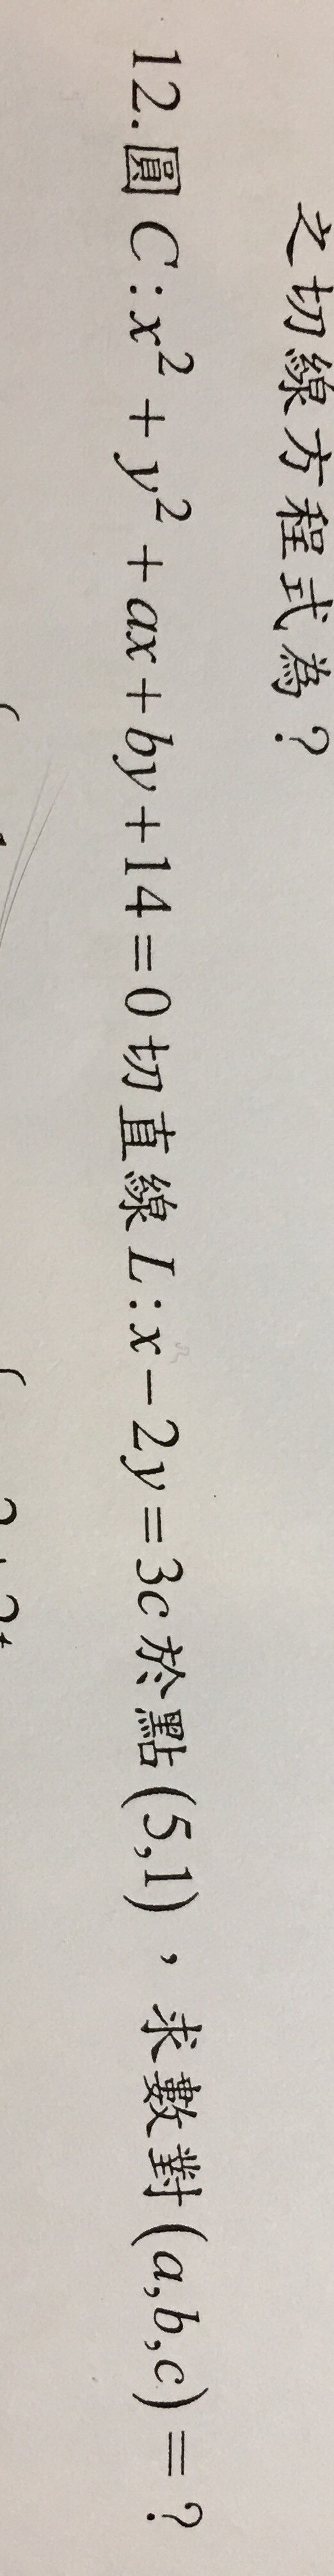 之切線方程式為?
12.圓 C:x²+y²+ax+by+14=0切直線L:x-2y=3c於點(5,1),求數對(a,b,c)=?